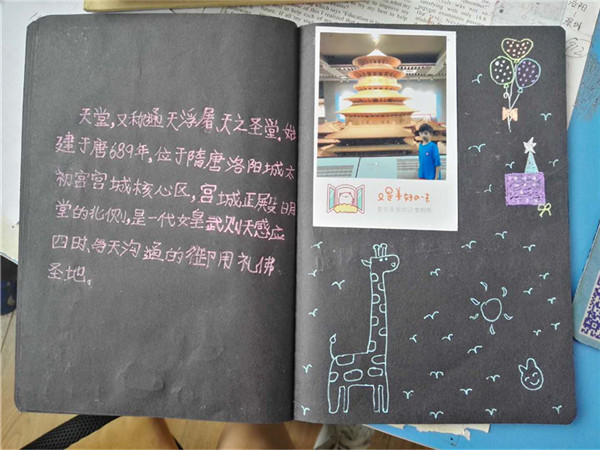 天堂,又称通天浮屠,天之圣堂。始
建于唐689年,位于隋唐洛阳城太
初宫宫城核心区,宫城正殿明
堂的北侧,是一代女皇武则天感应
四时、与天沟通的御用礼佛
圣地。
又是美好的一天
洛阳